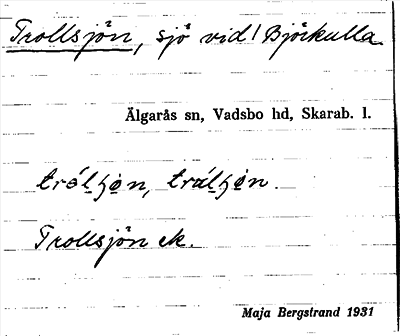 Trollsjön, sjö vid Björkulla.
Älgarås sn, Vadsbo hd, Skarab. l.
Trollsjön ek.
Maja Bergstrand 1931